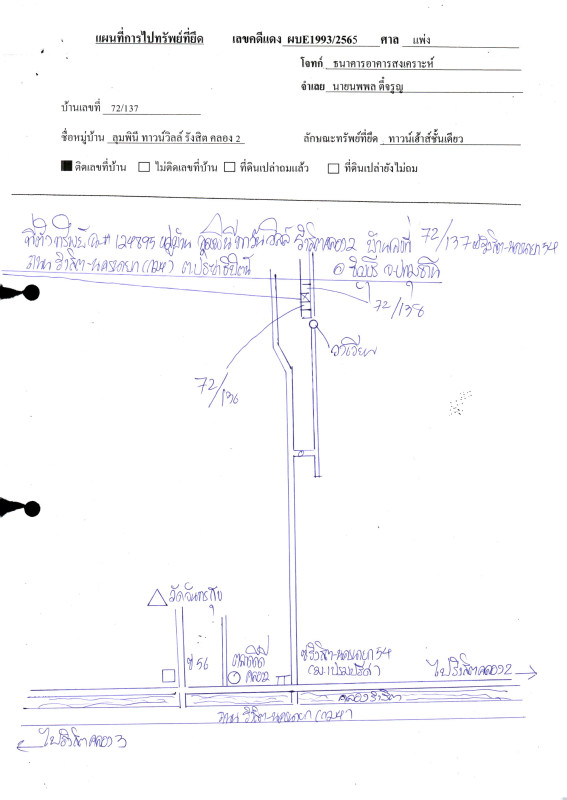 แผนที่การไปทรัพย์ที่ยึด เลขคดีแดง ผบE1993/2565 ศาล แพ่ง
โจทก์ ธนาคารอาคารสงเคราะห์
จำเลย นายนพพล ดี้จรูญ
บ้านเลขที่ 72/137
ชื่อหมู่บ้าน ลุมพินี ทาวน์วิลล์ รังสิต คลอง 2 ลักษณะทรัพย์ที่ยึด ทาวน์เฮ้าส์ชั้นเดียว
ติดเลขที่บ้าน ไม่ติดเลขที่บ้าน ที่ดินเปล่าถมแล้ว ที่ดินเปล่ายังไม่ถม
ที่ตั้งทรัพย์ 124895 หมู่บ้าน ลุมพินี ทาวน์วิลล์ รังสิตคลอง2 บ้านเลขที่ 72/137 ซ.รังสิต-นครนายก 54
ถนน รังสิต-นครนายก ต.ประชาธิปัตย์ อ.ธัญบุรี จ.ปทุมธานี
72/138
วงเวียน
72/136
วัดจันทรสุข
ซ 56
ตลาดดีดี คลอง2
ซ รังสิต-นครนายก 54
ไปรังสิตคลอง 2
คลองรังสิต
ถนน รังสิต-นครนายก
ไปรังสิตคลอง 3